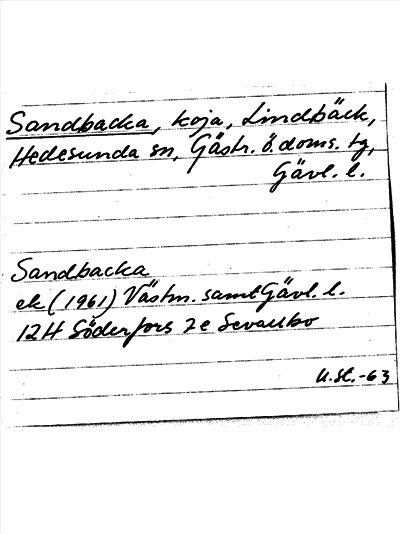 Sandbacka, koja, Lindbäck,
Hedesunda sn, Gästr. ö. doms. tg,
Gävl. l.
Sandbacka
ek (1961) Västm. samt Gävl. l.
12H Söderfors 2e Sevallbo
U.St.-63